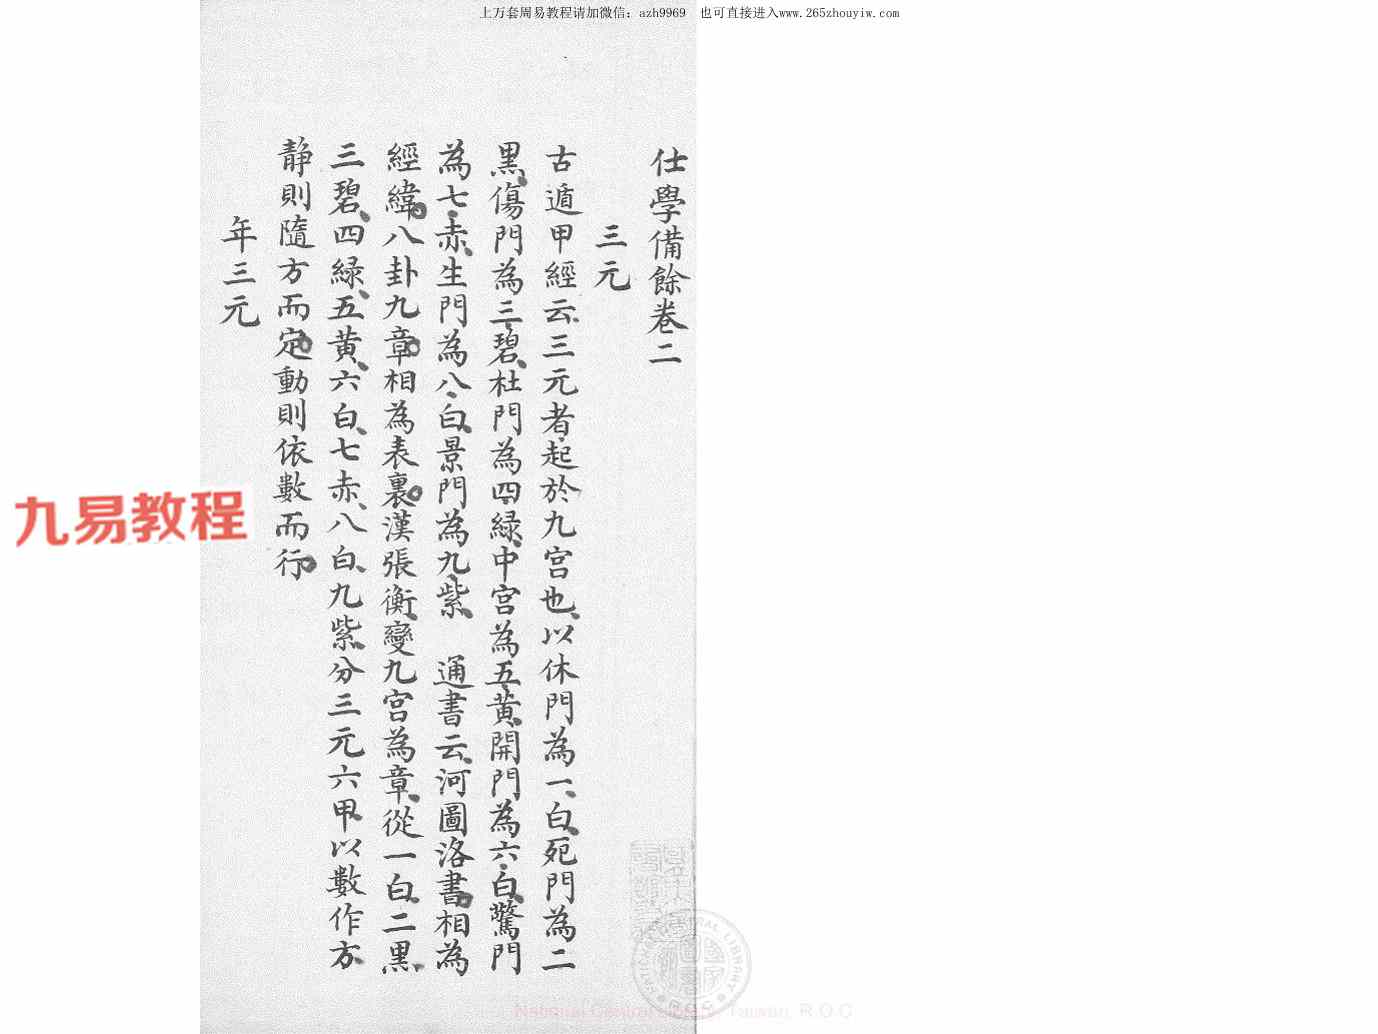 上万套周易教程请加微信：azh9969 也可直接进入www.265zhouyiw.com
仕學備餘卷二
三元
古遁甲經云、三元者起於九宮也、以休門為一、白、死門為二
黑、傷門為三、碧、杜門為四、綠、中宮為五、黃、開門為六、白、驚門
為七、赤、生門為八、白、景門為九、紫、 通書云、河圖洛書。相為
經緯。八卦九章。相為表裏。漢張衡、變九宮為章、從一白、二黑、
三碧、四綠、五黃、六白、七赤、八白、九紫、分三元六甲、以數作方、
靜則隨方而定。動則依數而行。
年三元
九易教程
National Central Library, Taiwan, R.O.C